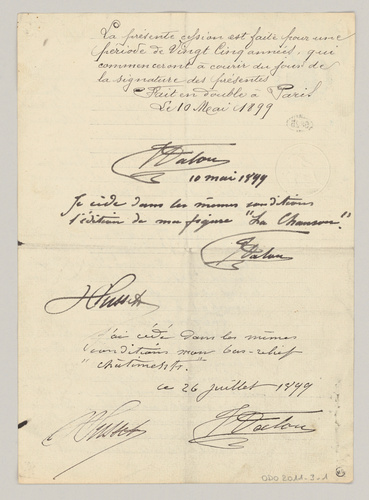 La présente cession est faite pour une
période de Vingt Cinq années, qui
commenceront à courir du jour de
la signature des présentes
Fait en double à Paris
Le 10 Mai 1899
J Dalou
10 mai 1899
Je cède dans les mêmes conditions
l'édition de ma figure "La Chanson".
J Dalou
Susse
J'ai cédé dans les mêmes
conditions mon bas-relief
"châtiments".
ce 26 juillet 1899
Susse
J Dalou
ODO 2011-3-1